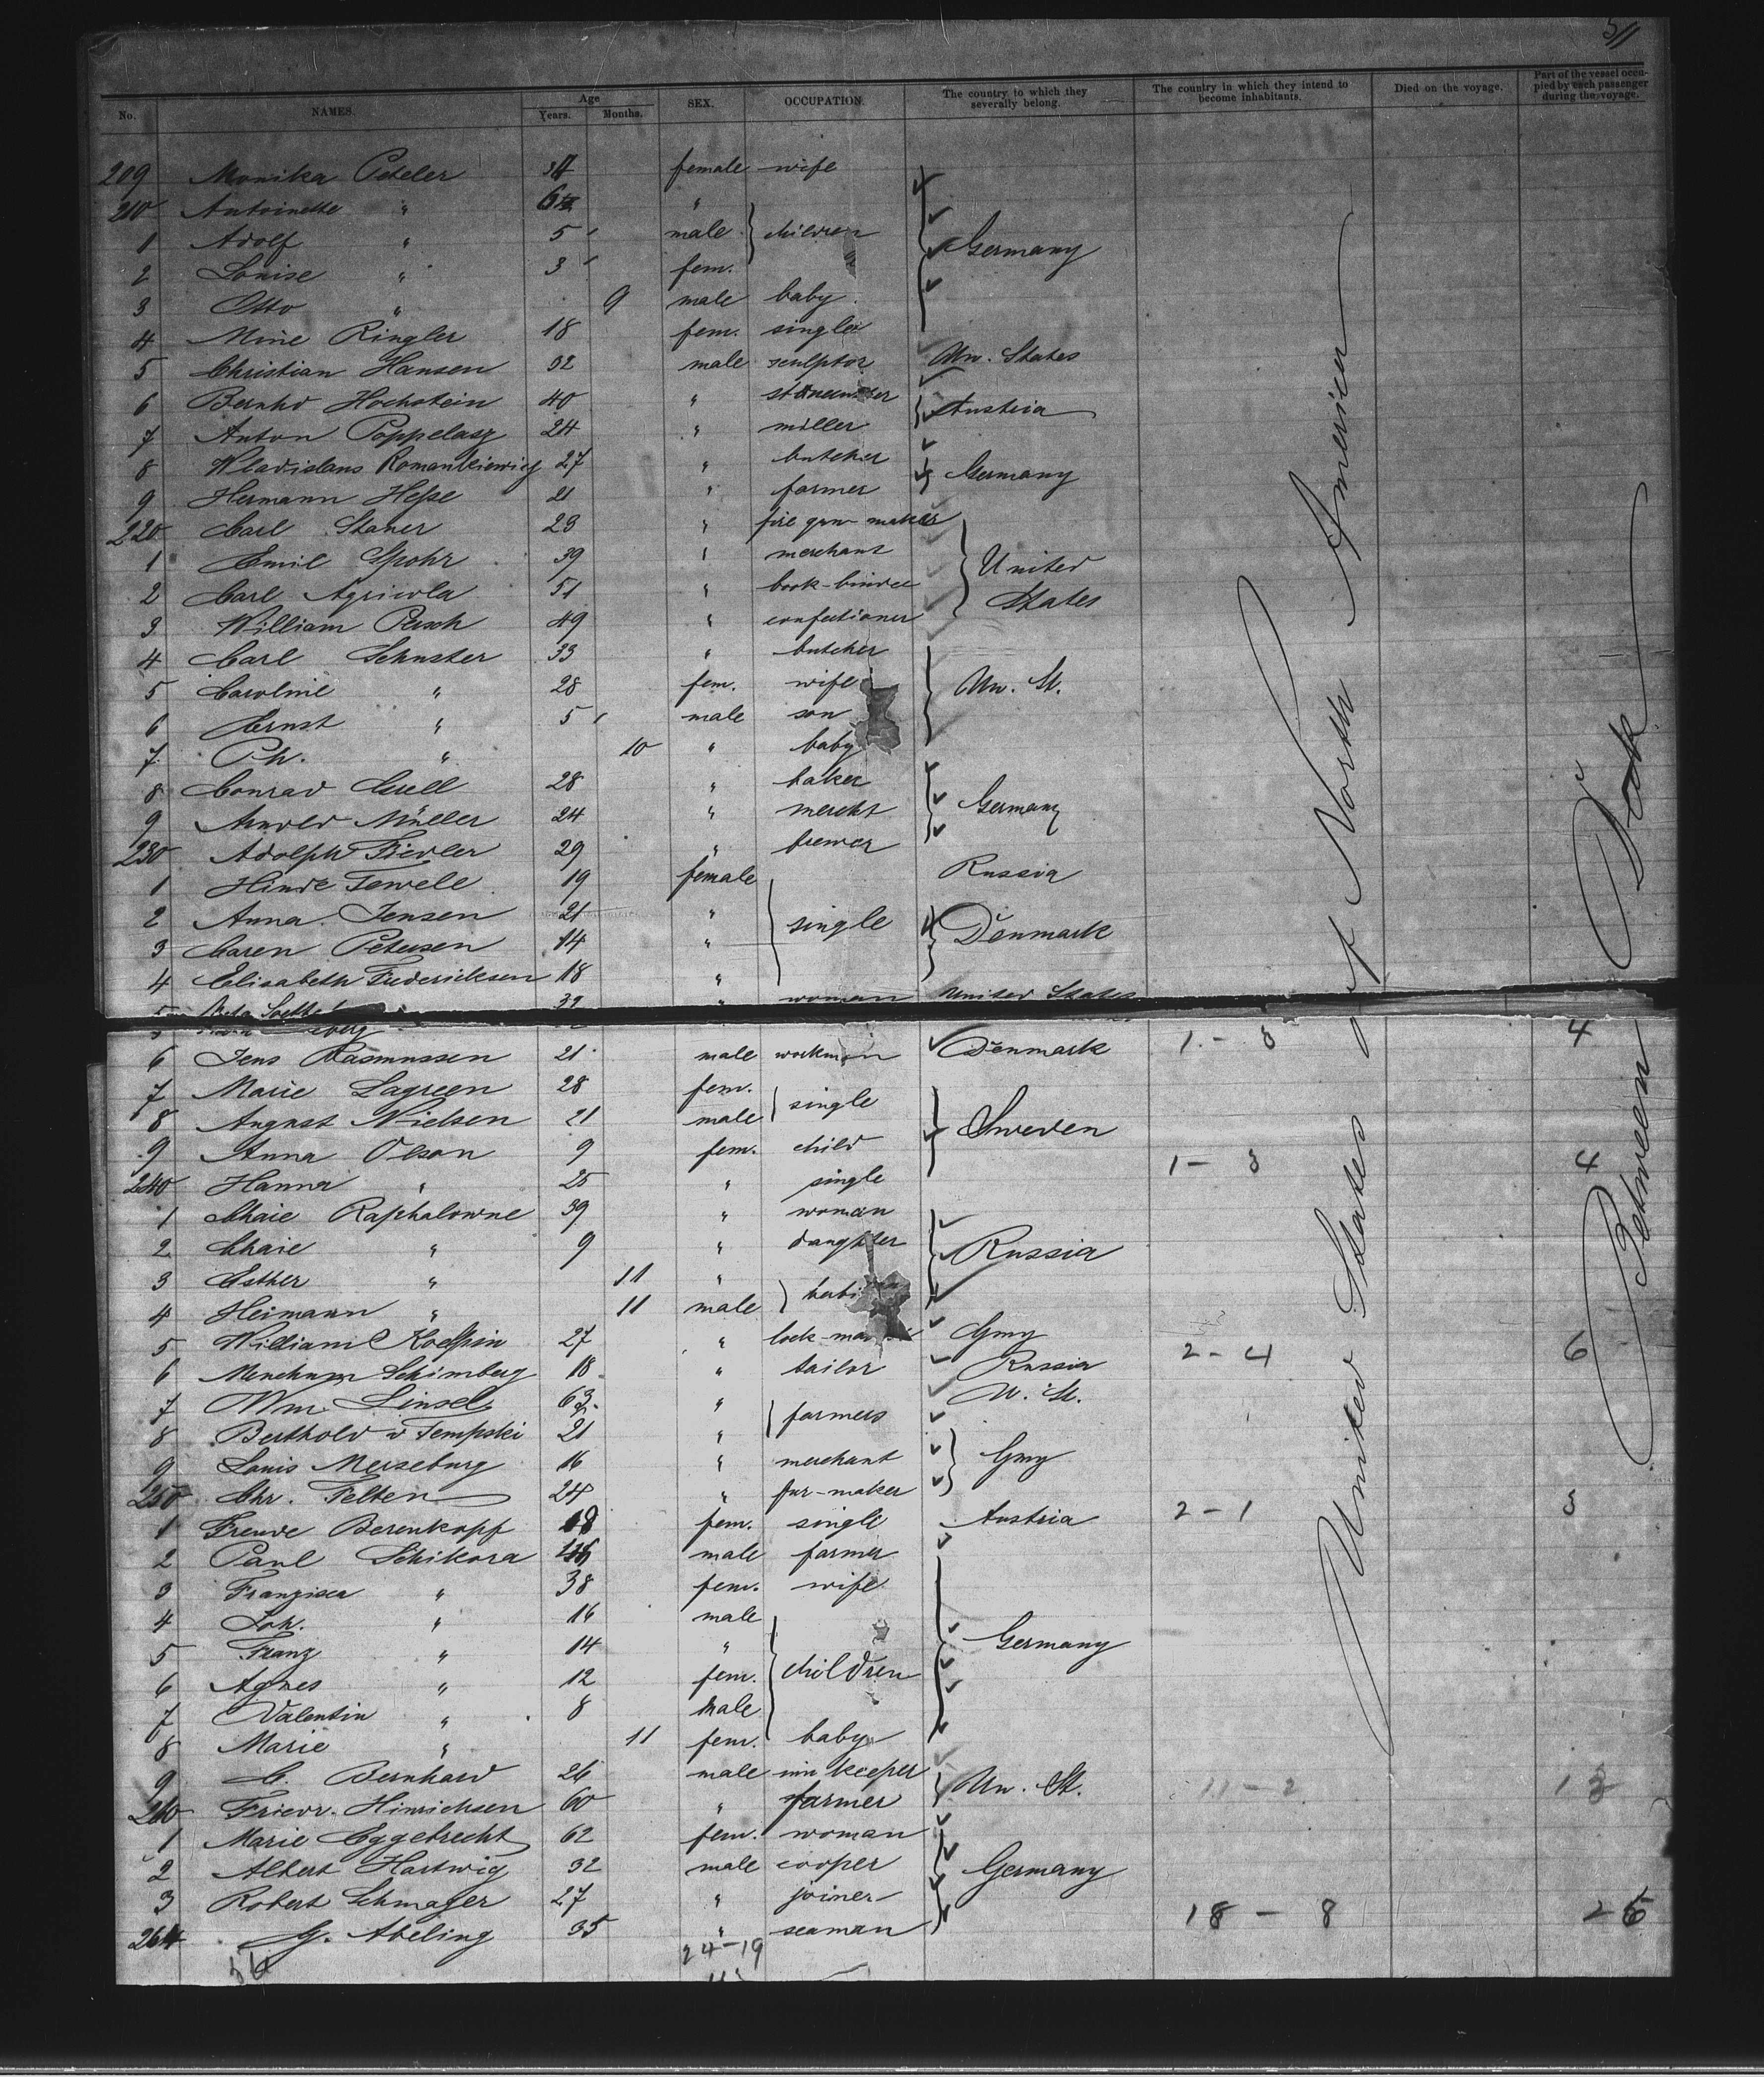 511
No. NAMES. Age Years. Months. SEX. OCCUPATION. The country to which they severally belong. The country in which they intend to become inhabitants. Died on the voyage. Part of the vessel occupied by each passenger during the voyage.
209 Monika Peteler female wife
210 Antoinette " "
1 Adolf " 5 male children Germany
2 Louise " 3 fem.
3 Otto " 9 male baby
4 Mine Ringler 18 fem. single
5 Christian Hansen 32 male sculptor Un. States
6 Bernhd Hochstein 40 " Austria
7 Anton Poppelasz 24 " miller
8 Wladislaus Romankiewicz 27 " butcher Germany
9 Hermann Hesse 21 " farmer
220 Carl Staner 23 " fire gun maker
1 Emil Spohr 39 " merchant United
2 Carl Agricola 51 " book-binder States
3 William Pesch 49 " confectioner
4 Carl Schuster 33 " butcher
5 Caroline " 28 fem. wife Un. St.
6 Ernst " 5 male son
7 Ph. " 10 " baby
8 Conrad Grell 28 " baker
9 Arnold Müller 24 " mercht Germany
230 Adolph Fiedler 29 " brewer
1 Hinde Tewele 19 female Russia
2 Anna Jensen 21 " single Denmark
3 Caren Petersen 14 "
4 Elisabeth Fredericksen 18 "
5 32 " woman United States
6 Jens Rasmussen 21 male workman Denmark 1 - 3 4
7 Marie Lagreen 28 fem. single
8 August Nielsen 21 male Sweden
9 Anna Olson 9 fem. child 1 - 3 4
240 Hanna " 25 " single
1 Chaie Raphalowne 39 " woman
2 Chaie " 9 " daughter Russia
3 Esther " 11 "
4 Heimann " 11 male
5 William Koespin 27 " Gmy 2 - 4 6
6 Menchum Schimberg 18 " tailor Russia
7 Wm. Linsel 63 " farmers U. St.
8 Berthold v Tempski 21 "
9 Louis Merseburg 16 " merchant Gmy
250 Chr. Felten 24 " fur-maker
1 Freude Berenkopf 18 fem. single Austria 2 - 1 3
2 Paul Schikora male farmer
3 Franzisca " 38 fem. wife
4 Joh. " 16 male
5 Franz " 14 " Germany
6 Agnes " 12 fem. children
7 Valentin " 8 male
8 Marie " 11 fem. baby
9 C. Bernhard 26 male inn keeper Un. St. 11 - 2 13
260 Friedr. Hinrichsen 60 " farmer
1 Marie Eggebrecht 62 fem. woman
2 Albert Hartwig 32 male cooper Germany
3 Robert Schmager 27 " joiner
264 G. Abeling 35 " seaman 18 - 8 26
24-19
United States of North America
Between Deck